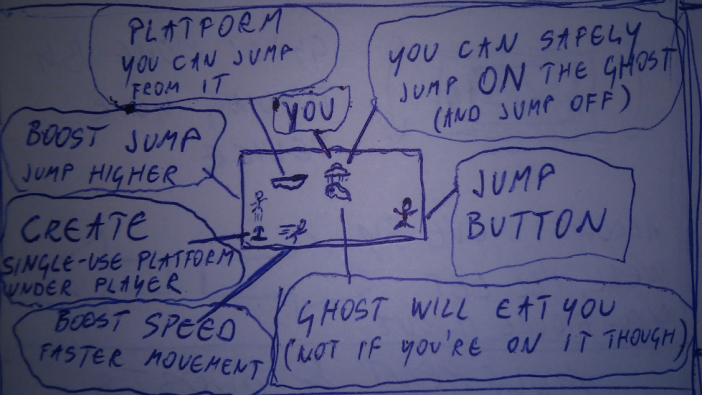 PLATFORM
YOU CAN JUMP
FROM IT
YOU CAN SAFELY
JUMP ON THE GHOST
(AND JUMP OFF)
YOU
BOOST JUMP
JUMP HIGHER
JUMP
BUTTON
CREATE
SINGLE-USE PLATFORM
UNDER PLAYER
BOOST SPEED
FASTER MOVEMENT
GHOST WILL EAT YOU
(NOT IF YOU'RE ON IT THOUGH)